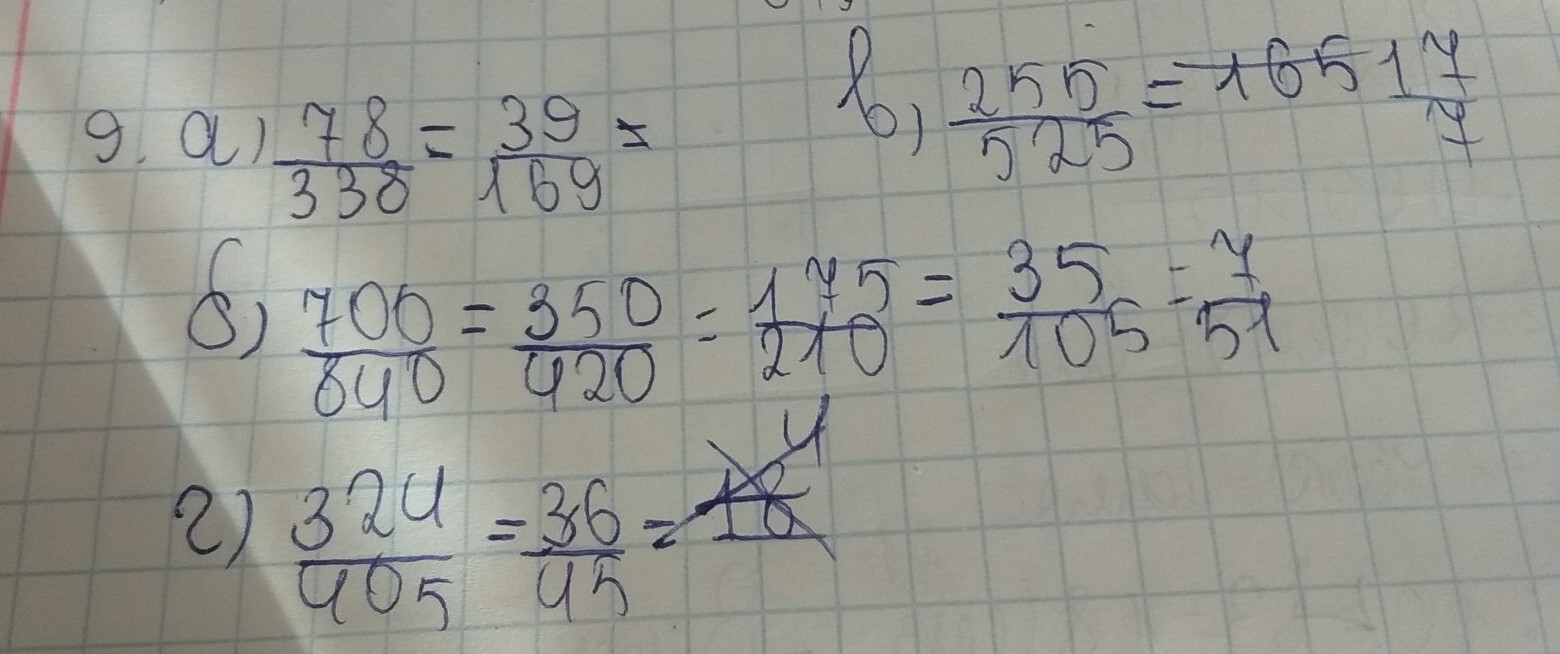 9. а) 78/338 = 39/169 =
в) 255/525 = 165 17/7
б) 700/840 = 350/420 = 175/210 = 35/105 = 7/51
г) 324/405 = 36/45 =